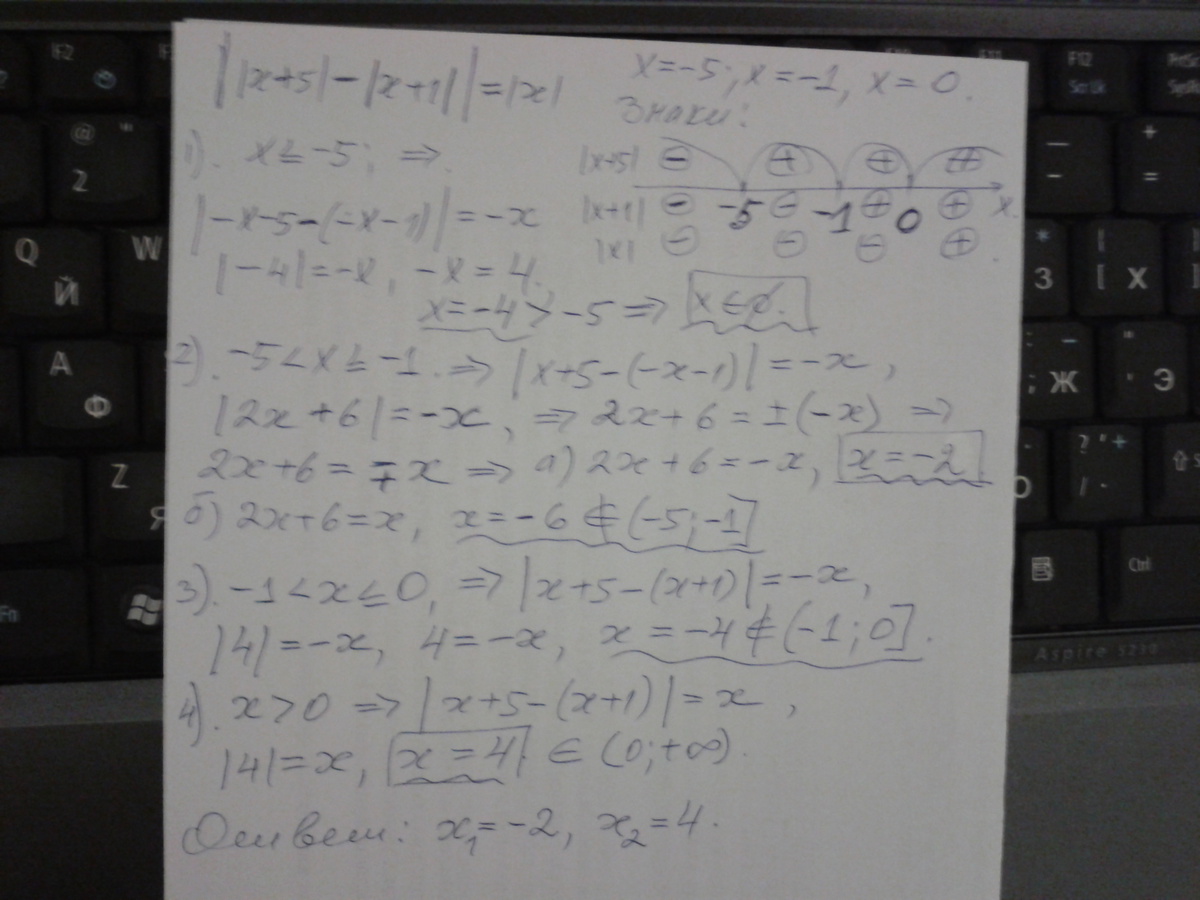 ||x+5|-|x+1||=|x|
x=-5; x=-1, x=0.
Знаки:
1). x≤-5; ⇒
|x+5| ⊖ ⊕ ⊕ ⊕
|-x-5-(-x-1)|=-x
|x+1| ⊖ -5 ⊖ -1 ⊕ 0 ⊕ x
|x| ⊖ ⊖ ⊖ ⊕
|-4|=-x, -x=4,
x=-4>-5 ⇒ x∈∅.
2). -5<x≤-1. ⇒ |x+5-(-x-1)|=-x,
|2x+6|=-x, ⇒ 2x+6=±(-x) ⇒
2x+6=∓x ⇒ а) 2x+6=-x, x=-2.
б) 2x+6=x, x=-6∉(-5;-1]
3). -1<x≤0, ⇒ |x+5-(x+1)|=-x,
|4|=-x, 4=-x, x=-4∉(-1;0].
4). x>0 ⇒ |x+5-(x+1)|=x,
|4|=x, x=4 ∈ (0;+∞).
Ответ: x₁=-2, x₂=4.
F2
F12
Scr Lk
PrtSc
@ "
2
Q
Й
W
A
Ф
Z
Я
Fn
+
=
*
З
[
[
Х
;
Ж
"
Э
?
/
Ctrl
Aspire